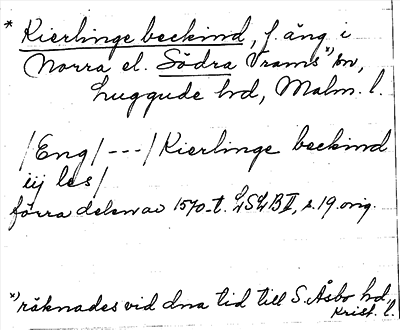 * Kierlinge beckind, f. äng i
Norra el. Södra Vrams *) sn,
Luggude hd, Malm. l.
/Eng/---/Kierlinge beckind
iij les/
förra delen av 1570-t. LSLB II, s. 19. orig.
*) räknades vid dna tid till S. Åsbo hd,
Krist. l.